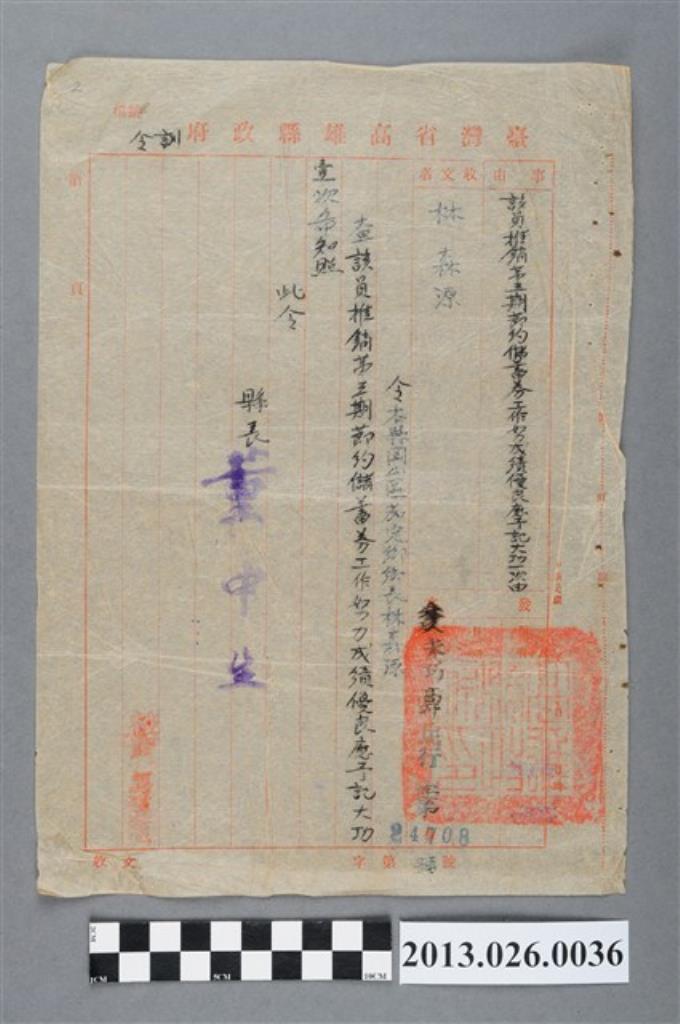 臺灣省高雄縣政府訓令
事由
該員推銷第三期節約儲蓄券工作努力成績優良應予記大功一次由
收文者
林森源
發
第
24708
號
令本縣岡山區
鄉鄉長林森源
查該員推銷第三期節約儲蓄券工作努力成績優良應予記大功
壹次希知照
此令
縣長
董中生
收文
字第
號
2
5CM
10CM
2013.026.0036